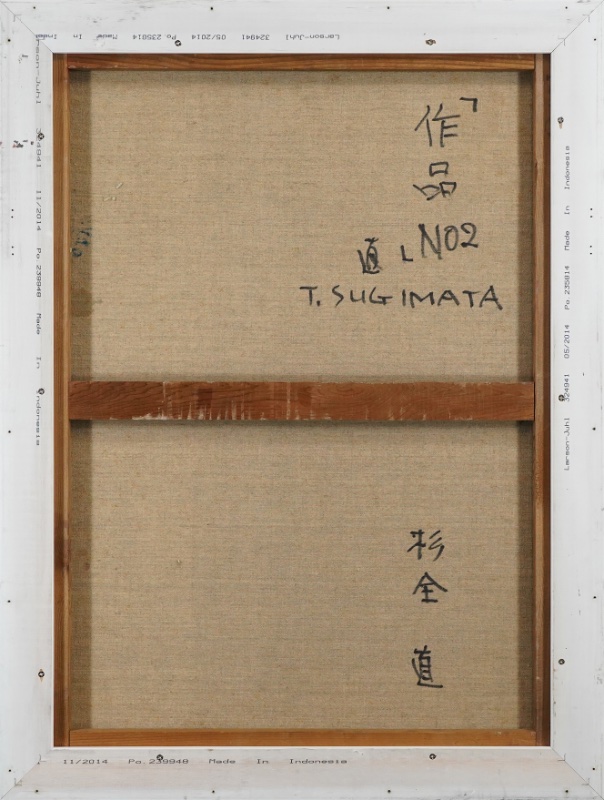 Larson-Juhl 324941 05/2014 Po.235814 Made In
rson-Juhl 324941 11/2014 Po.239948 Made In Indonesia
「作品 NO2」
直
T. SUGIMATA
杉全 直
Larson-Juhl 324941 05/2014 Po.235814 Made In Indonesia
11/2014 Po.239948 Made In Indonesia